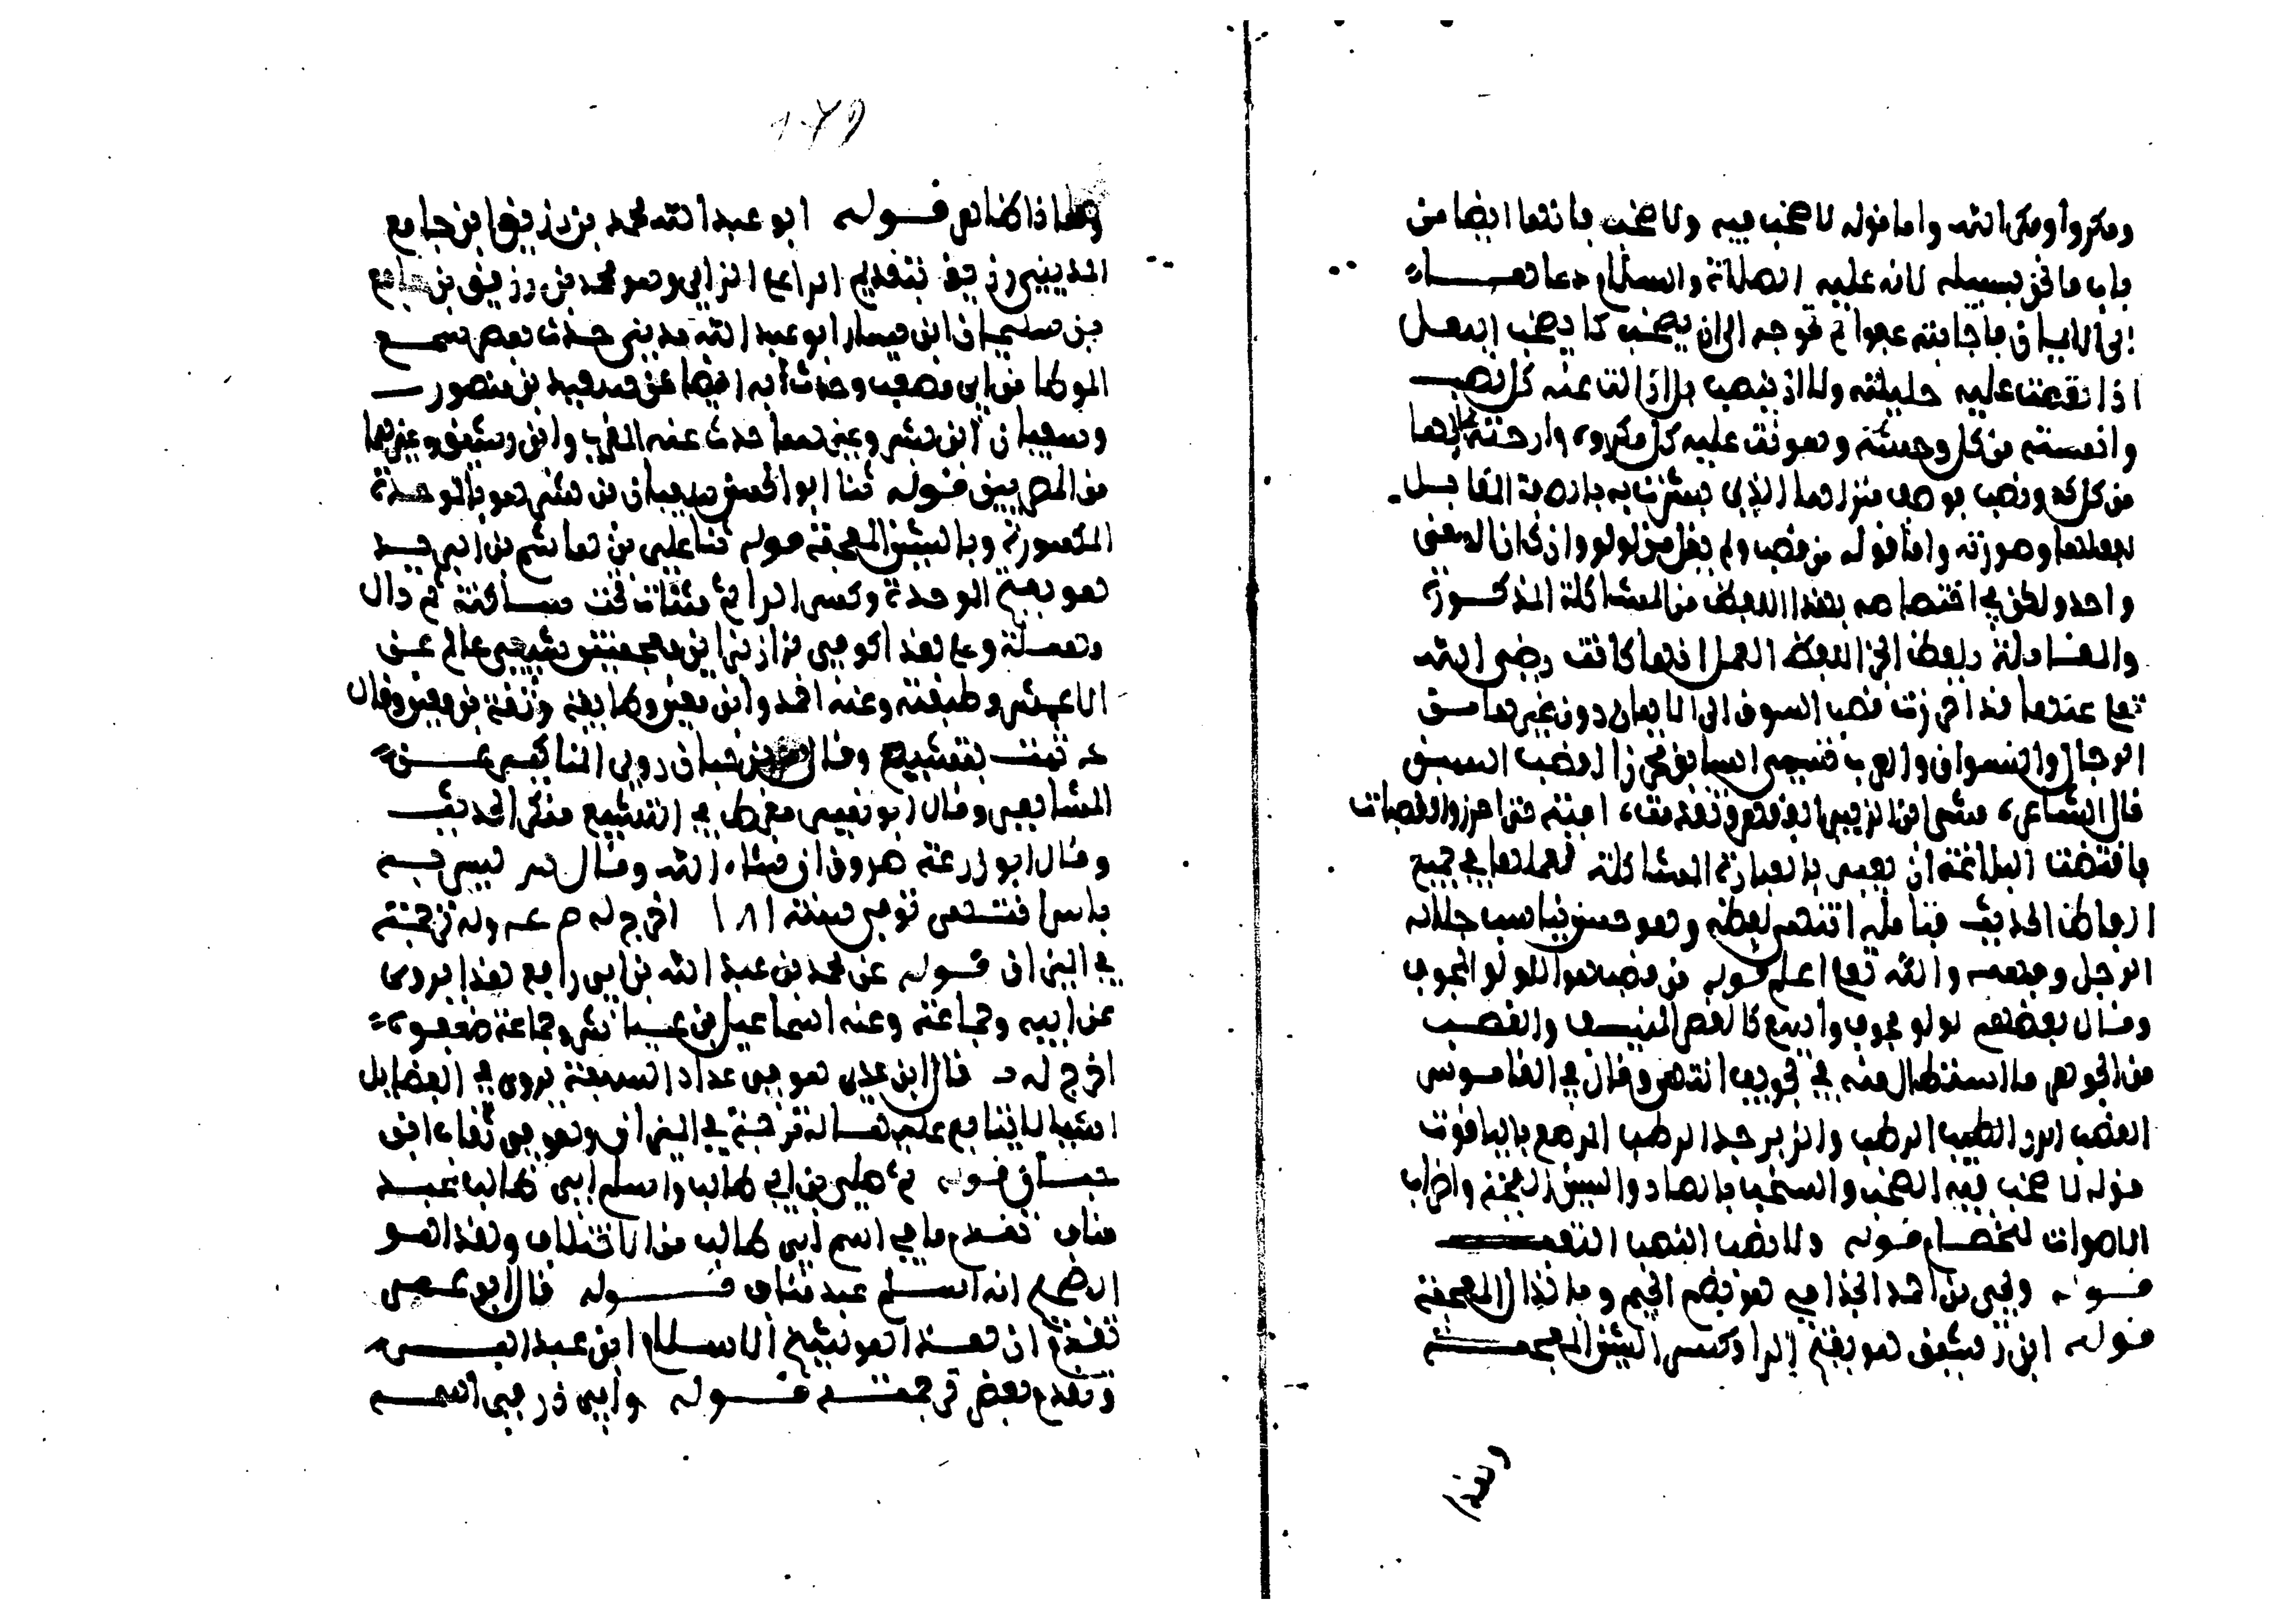 ومكروا ومكر الله واما قوله لا صخب فيه ولا نصب فانها ايضا من
باب ما نحن بسبيله لانه عليه الصلاة والسلام دعاها
الى الايمان فاجابته عفوا لم تحوجه الى ان يصخب كما يصخب البعل
اذا تعصت عليه حليلته ولا ان ينصب بل ازالت عنه كل نصب
وانسته من كل وحشة وهونت عليه كل مكروه وارحته بمالها
من كل كد ونصب فوصف منزلها الذي بشرت به بالصفة المقابلة
لفعلها وصورته واما قوله من قصب ولم يقل من لولو وان كان المعنى
واحد ولكن في اختصاصه بهذا اللفظ من المشاكلة المذكورة
والمقابلة بلفظ الجزا للفظ العمل انها كانت رضي الله
تعا عنها قد احرزت قصب السبق الى الايمان دون غيرها من
الرجال والنسوان والعرب تسمي السابق محرزا لقصب السبق
قال الشاعر مشى ابن الزبير القهقرى وتقدمت امية حتى احرزوا القصبات
فاقتضت البلاغة ان يعبر بالعبارة المشاكلة لعملها في جميع
الفاظ الحديث فتامله انتهى لفظه وهو حسن يناسب جلالة
الرجل وفهمه والله تعا اعلم قوله من قصب هو اللولو المجوف
وقال بعضهم لولو مجوف واسع كالقصر المنيف والقصب
من الجوهر ما استطال منه في تجويف انتهى وقال في القاموس
القصب الدر الرطب والزبرجد الرطب المرصع بالياقوت
قوله لا صخب فيه الصخب والسخب بالصاد والسين الضجة واضطراب
الاصوات للخصام قوله ولا نصب النصب التعب
قوله ويحيى بن احمد الجذامي هو بضم الجيم وبالذال المعجمة
قوله ابن رشيق هو بفتح الرا وكسر الشين المعجمة
وهذا ظاهر قوله ابو عبد الله محمد بن رزيق ابن جامع
المديني رزيق بتقديم الرا على الزاي وهو محمد بن رزيق بن جامع
بن سليمان ابن يسار ابو عبد الله مديني حدث بمصر سمع
الموطا من ابي مصعب وحدث به ايضا عن سعيد بن منصور
وسفيان ابن بشر وغيرهما حدث عنه ابن رشيق وغيرهما
من المصريين قوله ثنا ابو الحسن سفيان بن بشر هو بالموحدة
المكسورة وبالشين المعجمة قوله ثنا علي بن هاشم بن البريد
هو بفتح الموحدة وكسر الرا ثم مثناة تحت ساكنة ثم دال
مهملة وعلي هذا كوفي خزاز بزاين معجمتين شيعي عالم عن
الاعمش وطبقته وعنه احمد وابن معين وطايفة وثقه بن معين وقال
د ثبت يتشيع وقال بن حبان روى المناكير عن
المشاهير وقال ابو نعيم مفرط في التشيع منكر الحديث
وقال ابو زرعة صدوق ان شاء الله وقال س ليس به
باس انتهى توفي سنة ١٨١ اخرج له م عه وله ترجمة
في الميزان قوله عن محمد بن عبيد الله بن ابي رافع هذا يروي
عن ابيه وجماعة وعنه اسماعيل بن عياش وجماعة ضعفوه
اخرج له ق قال ابن عدي هو في عداد الشيعة يروي في الفضايل
اشيا لا يتابع عليها له ترجمة في الميزان وهو في ثقات ابن
حبان قوله ثم علي بن ابي طالب واسم ابي طالب عبد
مناف تقدم ما في اسم ابي طالب من الاختلاف وهذا هو
الصحيح ان اسمه عبد مناف قوله قال ابو عمر
تقدم ان هذا هو شيخ الاسلام ابن عبد البر
وتقدم بعض ترجمته قوله وابي ذر في اسمه